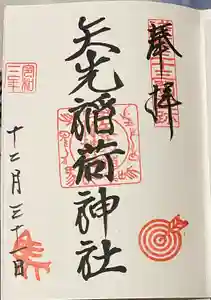 奉拝
矢先稲荷神社
令和
三年
十二月三十一日